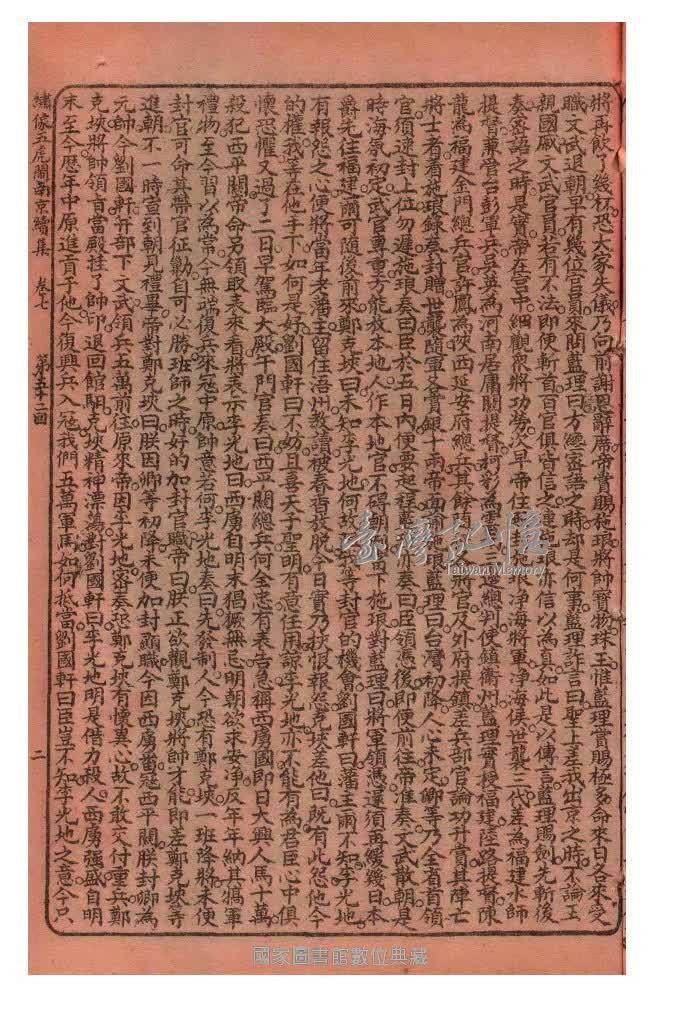 將再飲了幾杯恐大家失儀乃向前謝恩辭席帝賞賜施琅將帥寶物珠玉惟藍理賞賜極多命來日各來受
職文武退朝早有幾位官員來問藍理曰方纔密語之時却是何事藍理詐言曰聖上差我出京之時不論王
親國戚文武官員若有不法即便斬首百官俱皆信之連施琅亦信以為真如此是以傳言藍理賜劍先斬後
奏密語之時是實帝在宮中細觀眾將功勞次早帝住 淨海將軍淨海侯世襲三代差為福建水師
提督兼管台彭軍兵吳英為河南居庸關提督柯彩為 總判使鎮衢州藍理實授福建陸路提督陳
龍為福建金門總兵官許鳳為陝西延安府總兵其餘 官及外府提鎮差兵部官論功升賞其陣亡
將士者着施琅錄奏封贈世襲隨軍又賞銀十兩帝 施琅藍理曰台灣初降人心未定卿等乃全省首領
官須速封上位勿遲施琅奏曰臣於五日內便要起程藍 亦奏曰臣領憑後即便前往帝准奏文武散朝是
時海氛初定武官專重方能救本地人作本地官不碍 下施琅對藍理曰將軍領憑還須再緩幾日本
爵先往福建爾可隨後前來鄭克塽曰未知李光地何故 等封官的機會劉國軒曰藩主爾不知李光地
有報怨之心便將當年老藩主留住浯州教讀被春香放脫今日實乃挾恨報怨克塽差他曰既有此怨他今
的權我等在他手下如何是好劉國軒曰不妨且喜天子聖明有意任用諒李光地亦不能有為君臣心中俱
懷恐懼又過了二日早駕臨大殿午門官奏曰西平關總兵何全忠有表告急稱西虜國即日大興人馬十萬
殺犯西平關帝命另領取表來看將表示李光地曰西虜自明末猖獗無忌明朝欲求安淨反年年納其犒軍
禮物至今習以為常今無端復兵來寇中原帥意若何李光地奏曰先發制人今恐有鄭克塽一班降將未便
封官可命其帶官征勦自可必勝班師之時好的加封官職帝曰朕正欲觀鄭克塽將師才能即差鄭克塽等
進朝不一時宣到朝見禮畢帝對鄭克塽曰朕因卿等初降未便加封顯職今因西虜番寇西平關朕封卿為
元帥今劉國軒并部下文武領兵五萬前往原來帝因李光地密奏恐鄭克塽有懷異心故不敢交付重兵鄭
克塽將帥領旨當殿挂了帥印退回館駟克塽精神漂蕩對劉國軒曰李光地明是借力殺人西虜强盛自明
末至今歷年中原進貢于他今復興兵入寇我們五萬軍馬如何抵當劉國軒曰臣豈不知李光地之意今只
繡像五虎鬧南京續集 卷七 第五十二回 二
臺灣記憶
Taiwan Memory
國家圖書館數位典藏